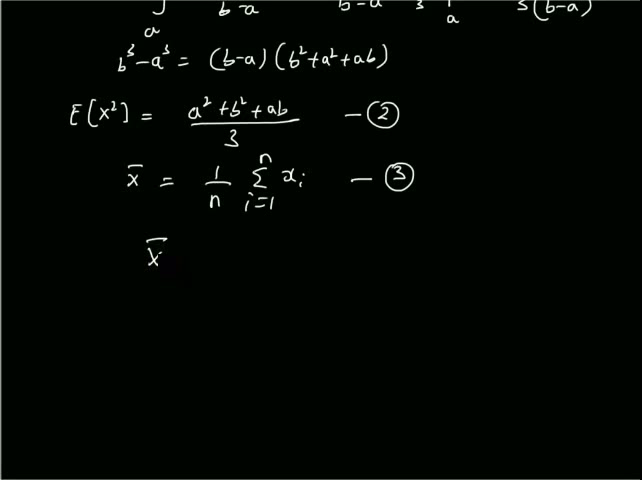 a b-a b-a 3 a 3(b-a)
b³-a³ = (b-a) (b²+a²+ab)
E[x²] = a²+b²+ab / 3 — ②
x̄ = 1/n Σ i=1 n xᵢ — ③
x̄